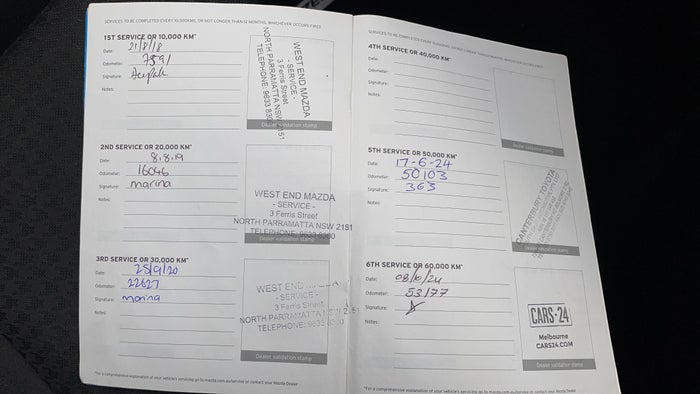 SERVICES TO BE COMPLETED EVERY 10,000KMS, OR NOT LONGER THAN 12 MONTHS, WHICHEVER OCCURS FIRST.
1ST SERVICE OR 10,000 KM*
Date: 21/8/18
Odometer: 7591
Signature:
Notes:
WEST END MAZDA
- SERVICE -
3 Ferris Street
NORTH PARRAMATTA NSW 2151
TELEPHONE: 9633 8300
Dealer validation stamp
2ND SERVICE OR 20,000 KM*
Date: 8.8.19
Odometer: 16046
Signature: marina
Notes:
WEST END MAZDA
- SERVICE -
3 Ferris Street
NORTH PARRAMATTA NSW 2151
TELEPHONE: 9633 8300
Dealer validation stamp
3RD SERVICE OR 30,000 KM*
Date: 25/9/20
Odometer: 22627
Signature: marina
Notes:
WEST END
- SERVICE -
3 Ferris Street
NORTH PARRAMATTA NSW 2151
TELEPHONE: 9633 8300
Dealer validation stamp
*For a comprehensive explanation of your vehicle's servicing go to mazda.com.au/service or contact your Mazda Dealer
SERVICES TO BE COMPLETED EVERY 10,000KMS, OR NOT LONGER THAN 12 MONTHS, WHICHEVER OCCURS FIRST.
4TH SERVICE OR 40,000 KM*
Date:
Odometer:
Signature:
Notes:
Dealer validation stamp
5TH SERVICE OR 50,000 KM*
Date: 17-6-24
Odometer: 50103
Signature: 363
Notes:
CANTERBURY TOYOTA
Dealer validation stamp
6TH SERVICE OR 60,000 KM*
Date: 08/10/24
Odometer: 53177
Signature:
Notes:
CARS·24
Melbourne
CARS24.COM
Dealer validation stamp
*For a comprehensive explanation of your vehicle's servicing go to mazda.com.au/service or contact your Mazda Dealer